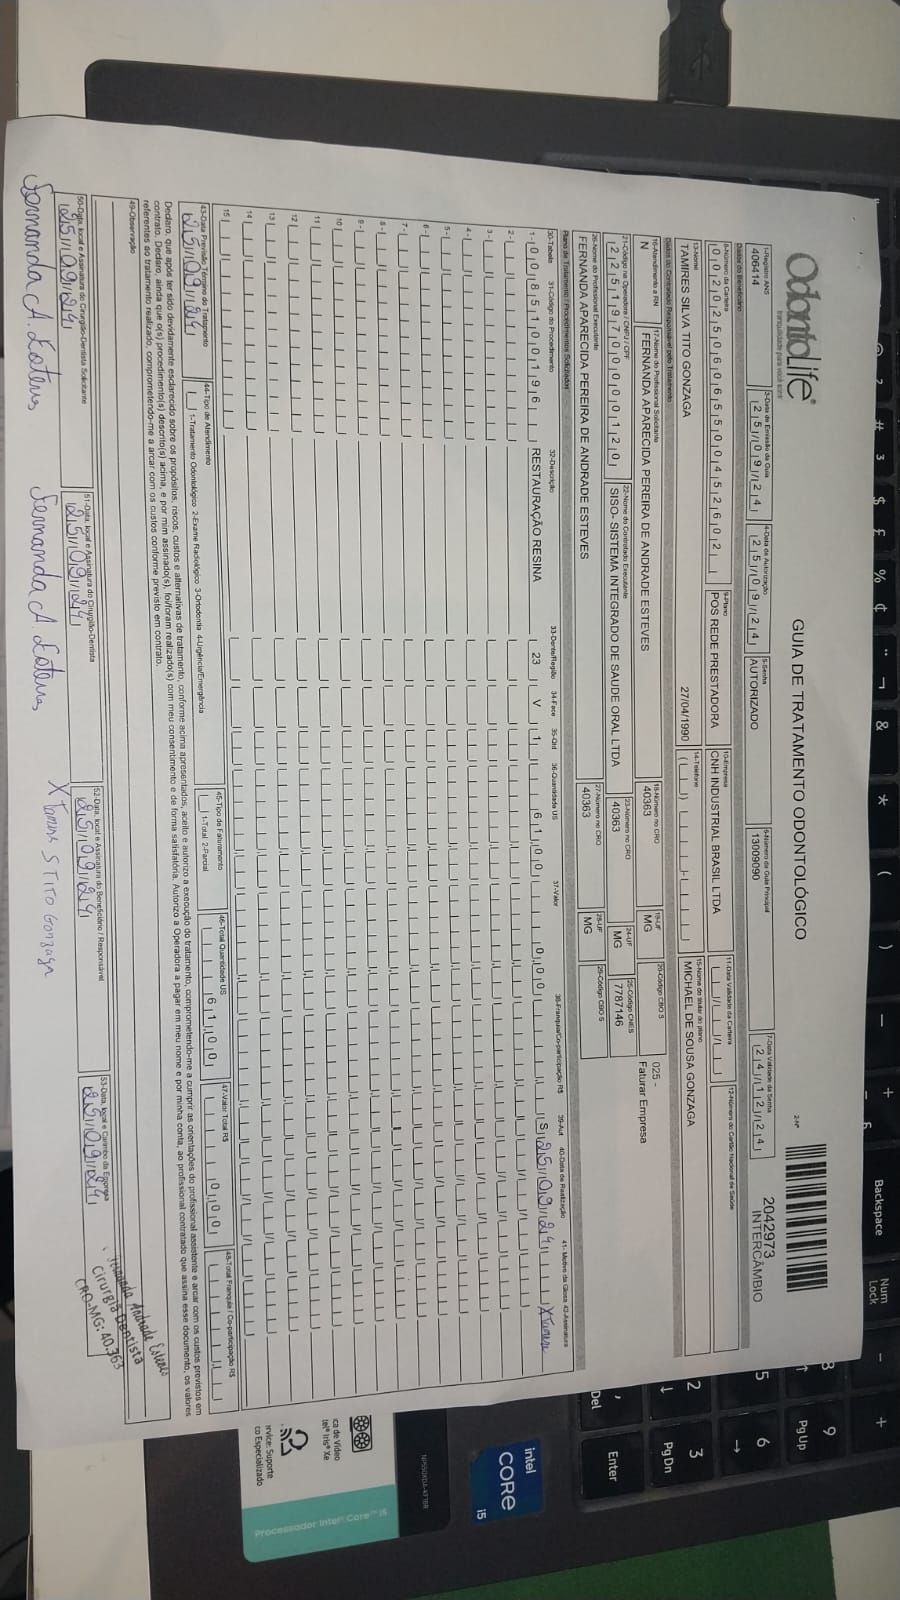 OdontoLife®
tranquilidade para você sorrir
GUIA DE TRATAMENTO ODONTOLÓGICO
2-Nº
2042973
INTERCÂMBIO
1-Registro ANS
406414
3-Data de Emissão da Guia
25/09/24
4-Data da Autorização
25/09/24
5-Senha
AUTORIZADO
6-Número da Guia Principal
13009090
7-Data Validade da Senha
24/12/24
Dados do Beneficiário
8-Número da Carteira
00202506065500452602
9-Plano
POS REDE PRESTADORA
10-Empresa
CNH INDUSTRIAL BRASIL LTDA
11-Data Validade da Carteira
12-Número do Cartão Nacional de Saúde
13-Nome
TAMIRES SILVA TITO GONZAGA
27/04/1990
14-Telefone
15-Nome do titular do plano
MICHAEL DE SOUSA GONZAGA
Dados do Contratado Responsável pelo Tratamento
16-Atendimento a RN
N
17-Nome do Profissional Solicitante
FERNANDA APARECIDA PEREIRA DE ANDRADE ESTEVES
18-Número no CRO
40363
19-UF
MG
20-Código CBO S
025 -
Faturar Empresa
21-Código na Operadora / CNPJ / CPF
22519700000120
22-Nome do Contratado Executante
SISO- SISTEMA INTEGRADO DE SAUDE ORAL LTDA
23-Número no CRO
40363
24-UF
MG
25-Código CNES
7787146
26-Nome do Profissional Executante
FERNANDA APARECIDA PEREIRA DE ANDRADE ESTEVES
27-Número no CRO
40363
28-UF
MG
29-Código CBO S
Plano de Tratamento / Procedimentos Solicitados
30-Tabela 31-Código do Procedimento 32-Descrição 33-Dente/Região 34-Face 35-Qtd 36-Quantidade US 37-Valor 38-Franquia/Co-participação R$ 39-Aut 40-Data de Realização 41- Motivo da Glosa 42-Assinatura
1- 00 85100196 RESTAURAÇÃO RESINA 23 V 1 61,00 0,00 S 25/09/24
2-
3-
4-
5-
6-
7-
8-
9-
10
11
12
13
14
15
43-Data Previsão Término do Tratamento
25/09/24
44-Tipo de Atendimento
1-Tratamento Odontológico 2-Exame Radiológico 3-Ortodontia 4-Urgência/Emergência
45-Tipo de Faturamento
1-Total 2-Parcial
46-Total Quantidade US
61,00
47-Valor Total R$
0,00
48-Total Franquia / Co-participação R$
Declaro, que após ter sido devidamente esclarecido sobre os propósitos, riscos, custos e alternativas de tratamento, conforme acima apresentados, aceito e autorizo a execução do tratamento, comprometendo-me a cumprir as orientações do profissional assistente e arcar com os custos previstos em
contrato. Declaro, ainda que o(s) procedimento(s) descrito(s) acima, e por mim assinado(s), foi/foram realizado(s) com meu consentimento e de forma satisfatória. Autorizo a Operadora a pagar em meu nome e por minha conta, ao profissional contratado que assina esse documento, os valores
referentes ao tratamento realizado, comprometendo-me a arcar com os custos conforme previsto em contrato.
49-Observação
50-Data, local e Assinatura do Cirurgião-Dentista Solicitante
25/09/24
Fernanda A. Esteves
51-Data, local e Assinatura do Cirurgião-Dentista
25/09/24
Fernanda A Esteves
52-Data, local e Assinatura do Beneficiário / Responsável
25/09/24
X Tamires S Tito Gonzaga
53-Data, local e Carimbo da Empresa
25/09/24
Fernanda Andrade Esteves
Cirurgiã Dentista
CRO-MG: 40.363
Backspace
Num
Lock
Enter
Del
PgUp
PgDn
intel
CORE
i5
Processador Intel® Core™ i5